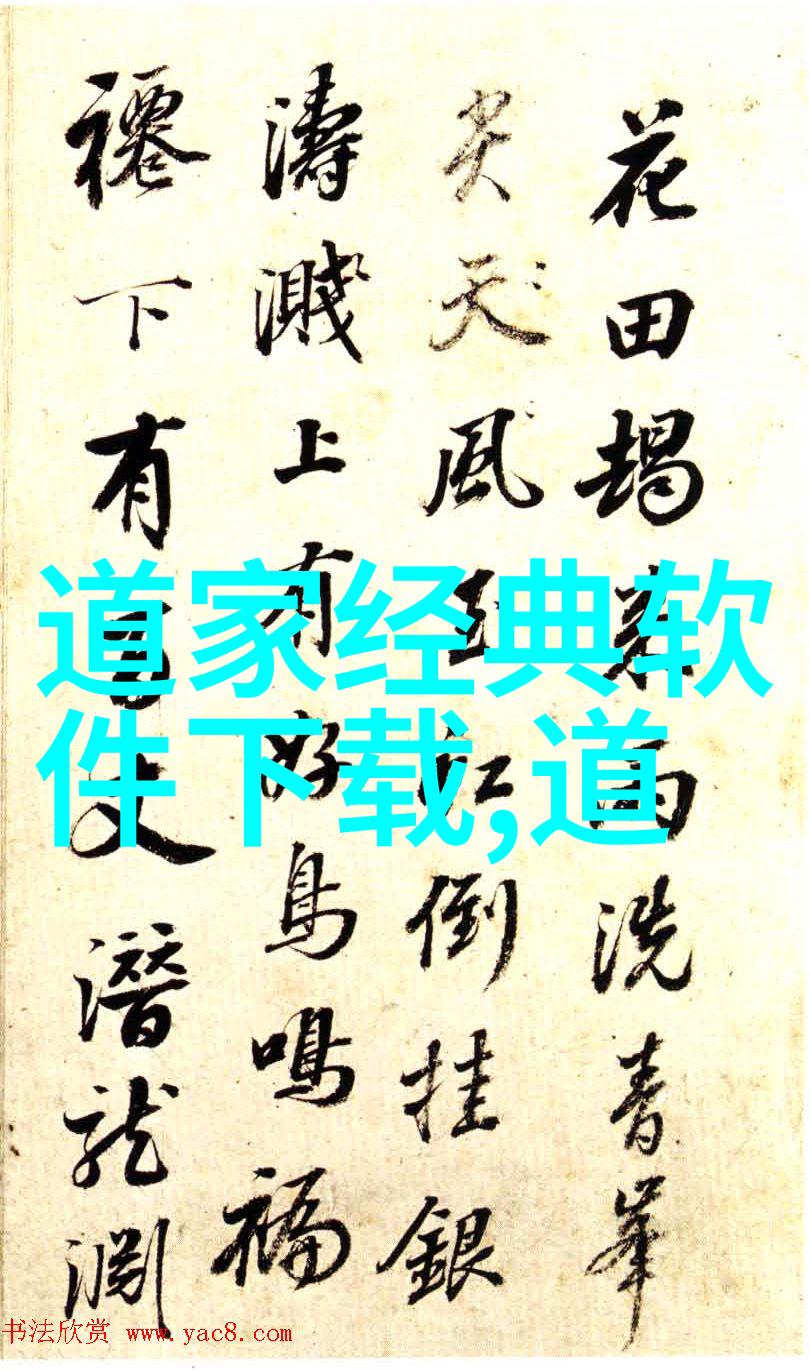 花田朅来雨洗青峯
尖天風玉虹倒挂銀
濤濺上有好鳥鳴福
下有文潛龍淵
道家经典软
件下载,道
书法欣赏 www.yac8.com